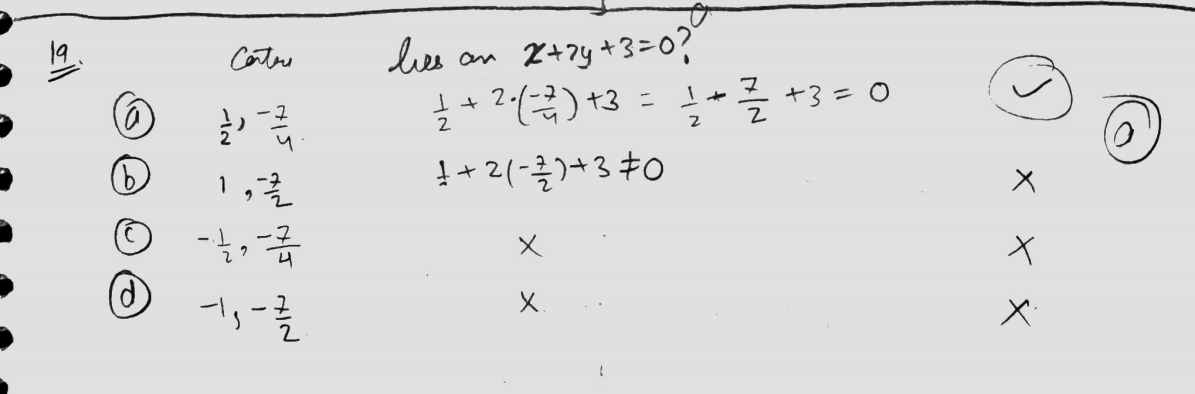 19. Centre lies on x+2y+3=0?
(a) 1/2, -7/4. 1/2 + 2·(-7/4) + 3 = 1/2 + 7/2 + 3 = 0 ✓ (a)
(b) 1, -7/2 1 + 2(-7/2) + 3 ≠ 0 ×
(c) -1/2, -7/4 × ×
(d) -1, -7/2 × ×